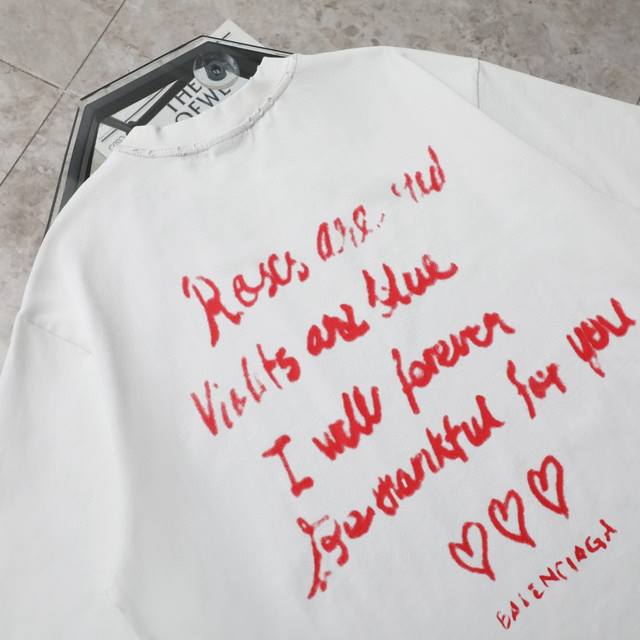 THE
LOEWE
Roses are red
Violets are blue
I will forever
be thankful for you
BALENCIAGA